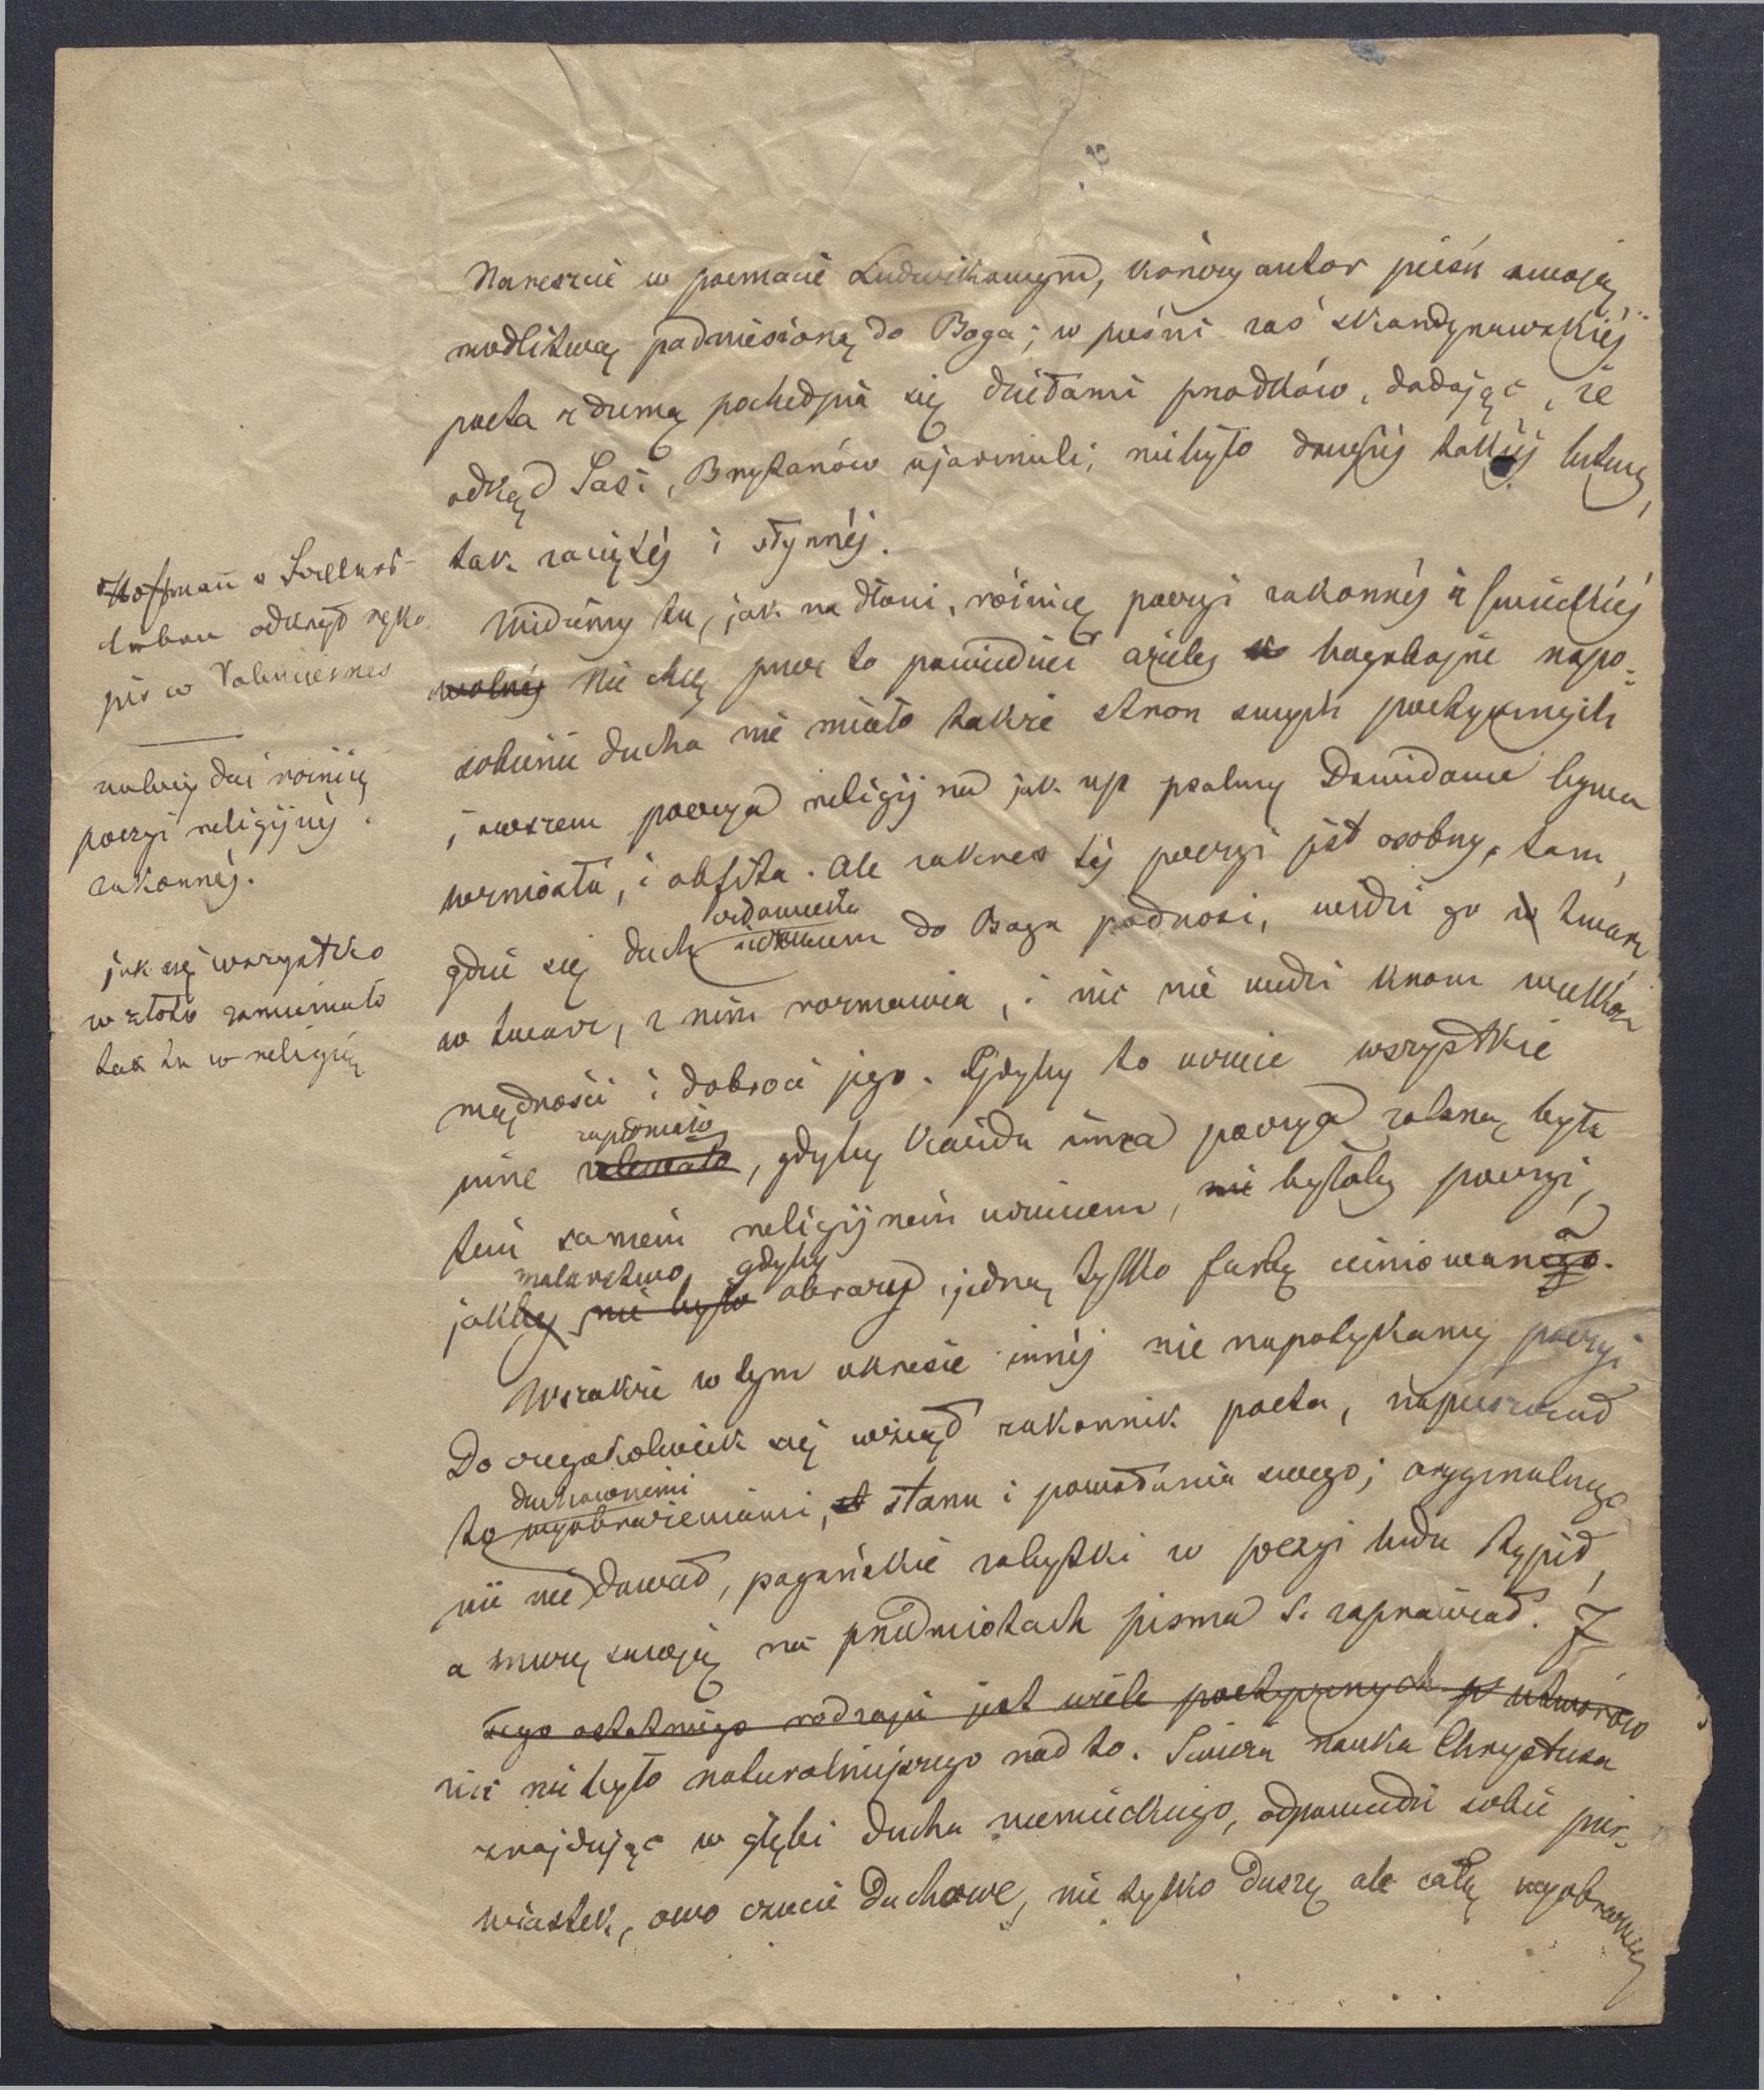 Nareszcie w poemacie Ludwikowym, kończy autor pieśń swoją
modlitwą podniesioną do Boga; w pieśni zaś skandynawskiéj
poeta z dumą pochełpia się dziełami przodków, dodając, że
odkąd Sasi, Brytanów ujarzmili, niebyło drugiéj takiéj bitwy,
tak zaciętéj i słynnéj.
Widzimy tu, jak na dłoni, różnicę poezyi zakonnéj i świeckiéj
wolnéj Nie chcę przez to powiedzieć ażeby bogobojne uspo-
sobienie ducha nie miało także stron swych poetycznych
i owszem poezya religijna jak np psalmy Dawidowe bywa
wzniosła, i obfita. Ale zakres téj poezyi jest osobny, tam,
gdzie się duch do Boga podnosi, widzi go w twarz
w twarz, z nim rozmawia, i nic nie widzi krom wielkości
mądrości i dobroci jego. Gdyby to uczucie wszystkie
zapełniało
inne zalewało, gdyby każda inna poezya zalaną była
tém samém religijném uczuciem, nie byłoby poezyi,
malarstwo, gdyby
jakby nie było obrazy jedną tylko farbą
Wszakże w tym okresie innéj nie napotykamy poezyi
Do czegokolwiek się wziął zakonnik poeta, napuszczał
duchownemi
to wyobrażeniami, stanu i powołania swego; oryginalnego
nic nie dawał, pogańskie zabytki w poezyi ludu tępił,
a muzę swoję na przedmiotach pisma ś. zaprawiał. I
tego ostatniego rodzaju jest wiele poetycznych utworów
nic niebyło naturalniejszego nad to. Świeża nauka Chrystusa
znajdując w głębi ducha niemieckiego, odpowiedni sobie pier-
wiastek, owo czucie duchowe, nie tylko duszę ale całą wyobraźnię
Hoffmann v Faellers-
leben odkrył ręko
pis w Valenciennes
należy dać różnicę
poezyi religijnéj
zakonnéj.
jak się wszystko
w złoto zamieniało
tak tu w religią